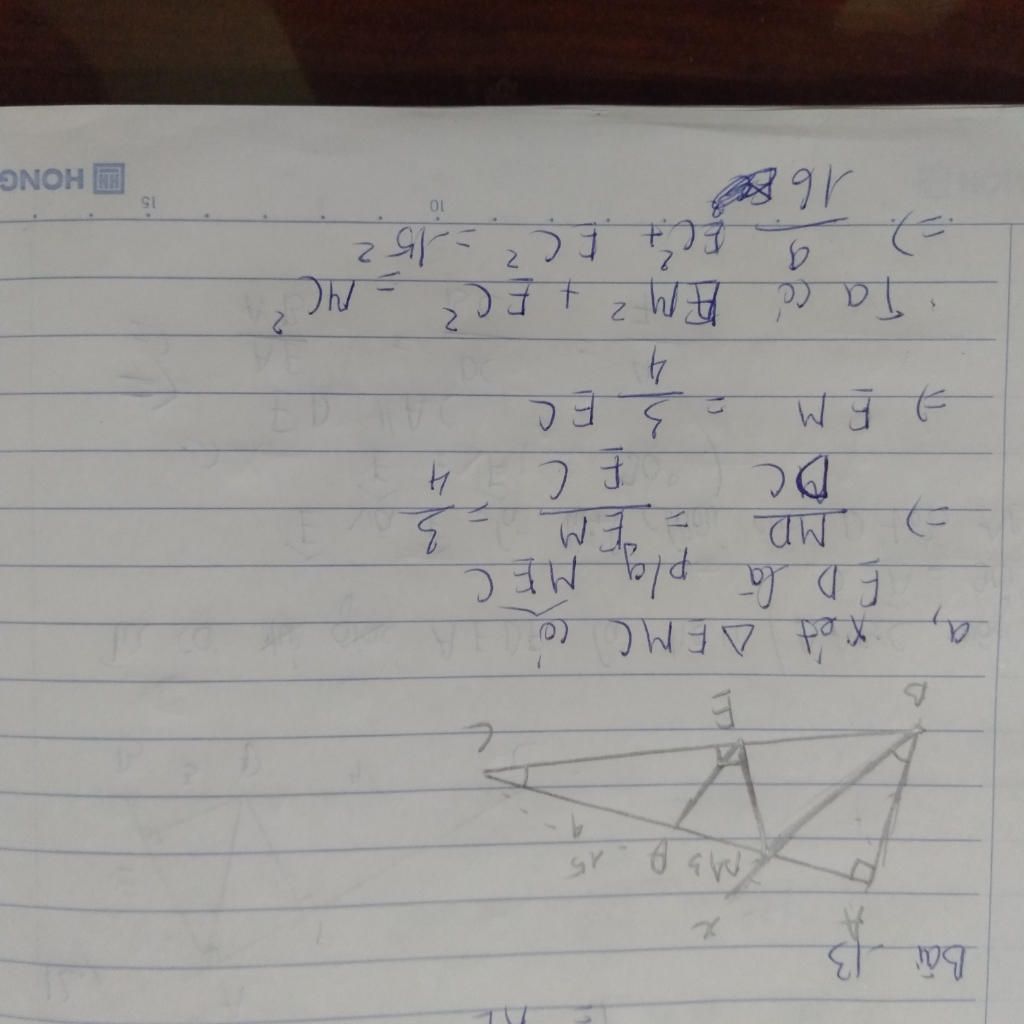 Bài 13
A
x
M 3 D 15
B E C
a, xét Δ EMC có
ED là p/g MEC
=> MD/DC = EM/EC = 3/4
=> EM = 3/4 EC
Ta có EM² + EC² = MC²
=> 9/16 EC² + EC² = 15²
10 15
HONG